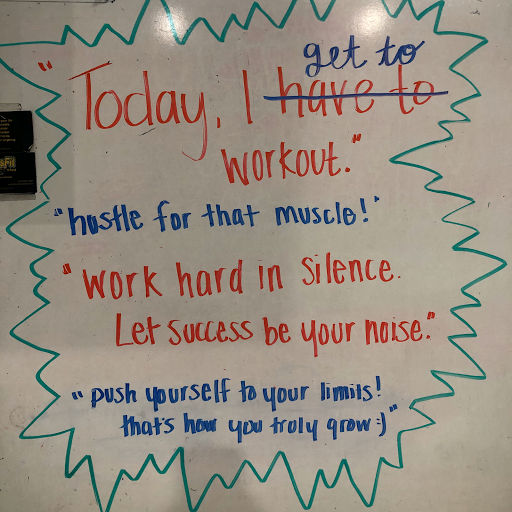 get to
"Today, I have to
workout."
"hustle for that muscle!"
"work hard in silence.
Let success be your noise."
"push yourself to your limits!
that's how you truly grow :)"